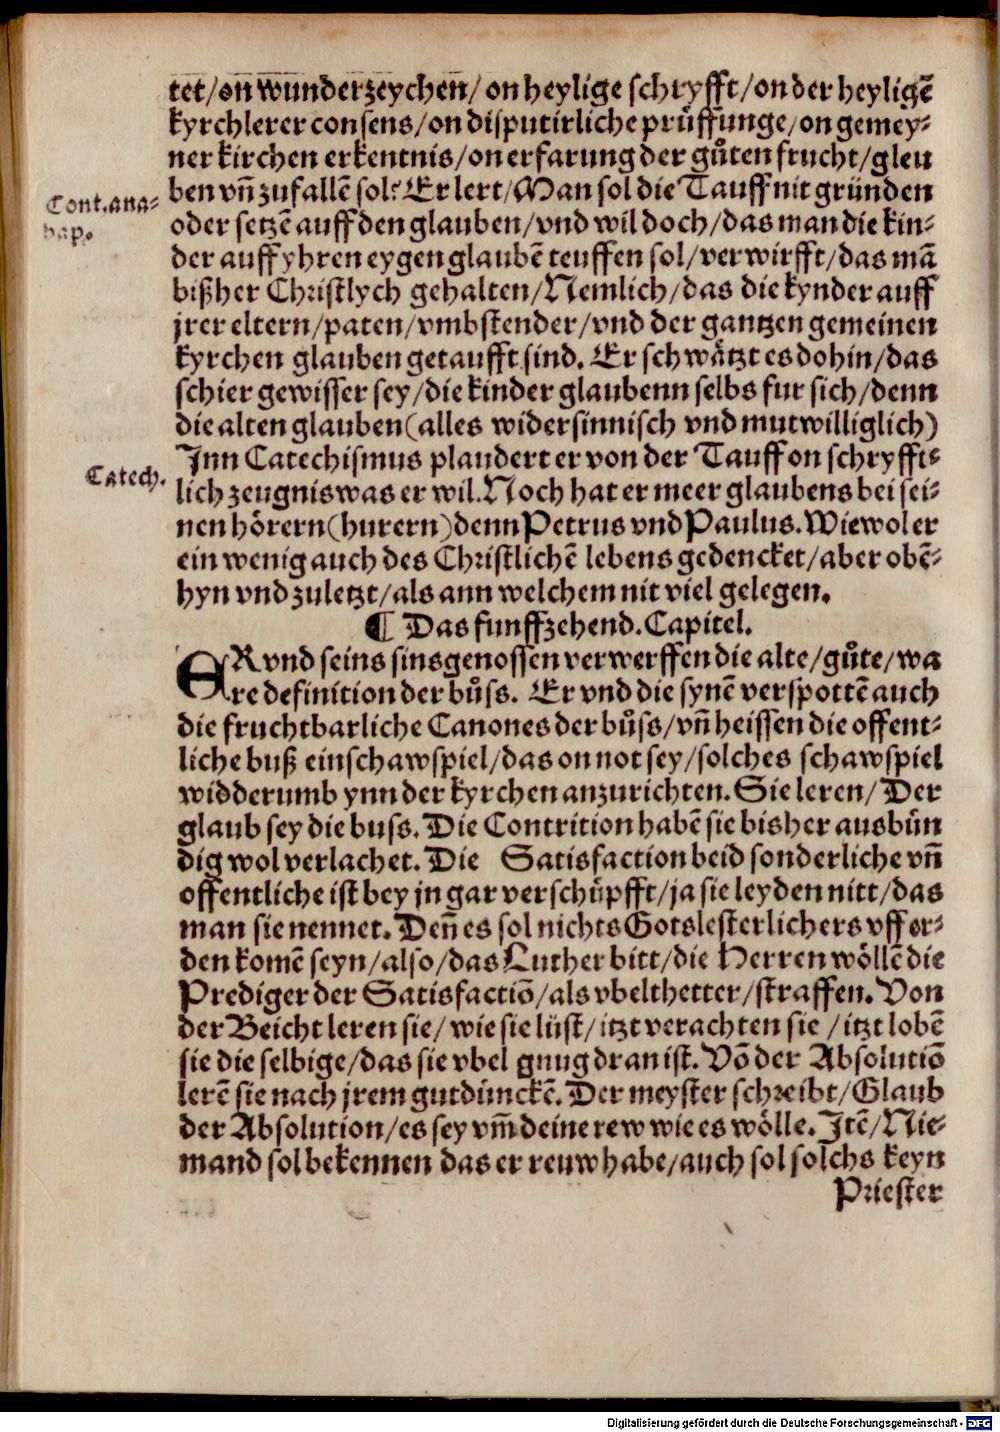 tet/on wunderzeychen/on heylige schryfft/on der heyligẽ
kyrchlerer consens/on disputirliche prüffunge/on gemey⸗
ner kirchen erkentnis/on erfarung der gůten frucht/gleu
Cont.ana⸗
bap.
ben vñ zufallẽ sol? Er lert/Man sol die Tauff nit gründen
oder setzẽ auff den glauben/vnd wil doch/das man die kin⸗
der auff yhren eygen glaubẽ teuffen sol/verwirfft/das mã
bißher Christlych gehalten/Nemlich/das die kynder auff
jrer eltern/paten/vmbstender/vnd der gantzen gemeinen
kyrchen glauben getaufft sind. Er schwätzt es dohin/das
schier gewisser sey/die kinder glaubenn selbs fur sich/denn
die alten glauben(alles widersinnisch vnd mutwilliglich)
Catech.
Inn Catechismus plaudert er von der Tauff on schryfft⸗
lich zeugnis was er wil. Noch hat er meer glaubens bei sei⸗
nen hörern(hurern)denn Petrus vnd Paulus. Wiewol er
ein wenig auch des Christlichẽ lebens gedencket/aber obẽ⸗
hyn vnd zuletzt/als ann welchem nit viel gelegen.
¶ Das funffzehend. Capitel.
ER vnd seins sinsgenossen verwerffen die alte/gůte/wa
re definition der bůss. Er vnd die synẽ verspottẽ auch
die fruchtbarliche Canones der bůss/vñ heissen die offent⸗
liche buß ein schawspiel/das on not sey/solches schawspiel
widderumb ynn der kyrchen anzurichten. Sie leren/Der
glaub sey die buss. Die Contrition habẽ sie bisher ausbün
dig wol verlachet. Die Satisfaction beid sonderliche vñ
offentliche ist bey jn gar verschüpfft/ja sie leyden nitt/das
man sie nennet. Deñ es sol nichts Gotslesterlichers vff er⸗
den komẽ seyn/also/das Luther bitt/die Herren wöllẽ die
Prediger der Satisfactiõ/als vbelthetter/straffen. Von
der Beicht leren sie/wie sie lüst/itzt verachten sie/itzt lobẽ
sie die selbige/das sie vbel gnug dran ist. Võ der Absolutiõ
lerẽ sie nach jrem gutdünckẽ. Der meyster schreibt/Glaub
der Absolution/es sey vm̃ deine rew wie es wölle. Itẽ/Nie⸗
mand sol bekennen das er reuw habe/auch sol solchs keyn
Priester
Digitalisierung gefördert durch die Deutsche Forschungsgemeinschaft - DFG